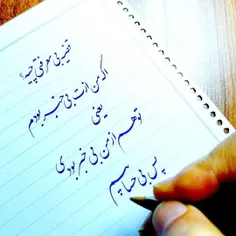 قضیه بی معرفتی چیه؟
اگه من ازت بی خبر بودم
یعنی
تو هم از من بی خبر بودی
پس بی حسابیم